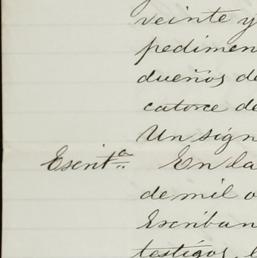 veinte y
pedimen
dueños de
catorce de
Un sign
Escritª. En la
de mil o
Escriban
testigos, l